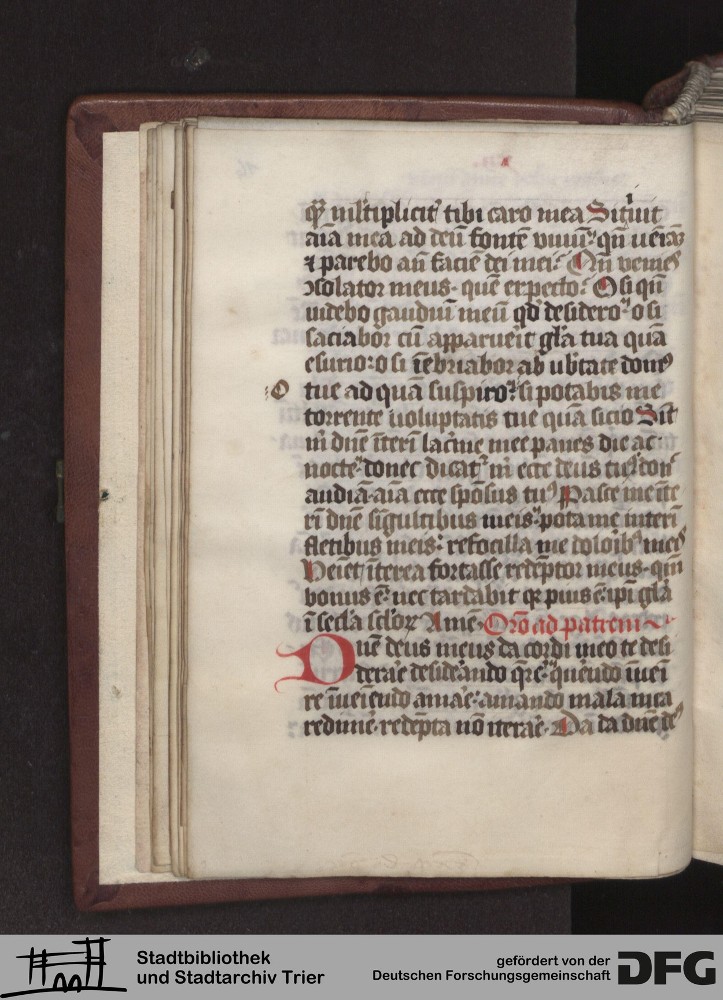 qͫ mͣltiplicit᷒ tibi caro mea Sitiuit
aīa mea ad deū fontē viuū· qn̄ ueniā
⁊ parebo an̄ faciē dei mei· Qn̄ venies
ↄsolator meus· quē expecto· O si qn̄
uidebo gaudiū meū qđ desidero· o si
saciabor cū apparueit gl̄a tua quā
esurio· o si īebriabor ab ub̄tate domꝰ
:O tue ad quā suspiro· si potabis me
torrente uoluptatis tue quā sicio Sīt
m̄ dn̄e īteri lac̄me mee panes die ac
nocte· donec dicat᷒ m̄ ecce deus tuꝰ don̄
audiā· aīa ecce sponsus tuꝰ Pasce me īte
ri dn̄e sīgultibus meis· pota me interī
fletibus meis· refocilla me dolōibꝫ meis
Veiet īterea fortasse redēptor meus· qm̄
bonus ē· nec tardabit qꝛ pius ē· ip̄i gl̄a
ī sec̄la sec̄loꝝ Amē· Orō ad patrem
Dn̄e deus meus da cordi meo te desi
derāe desidēando q̄re· querēdo īuei
re īueiēdo amāe· amando mala mea
redime· redēpta nō iterāe· Da da dn̄e dꝰ
Stadtbibliothek
und Stadtarchiv Trier
gefördert von der
Deutschen Forschungsgemeinschaft
DFG